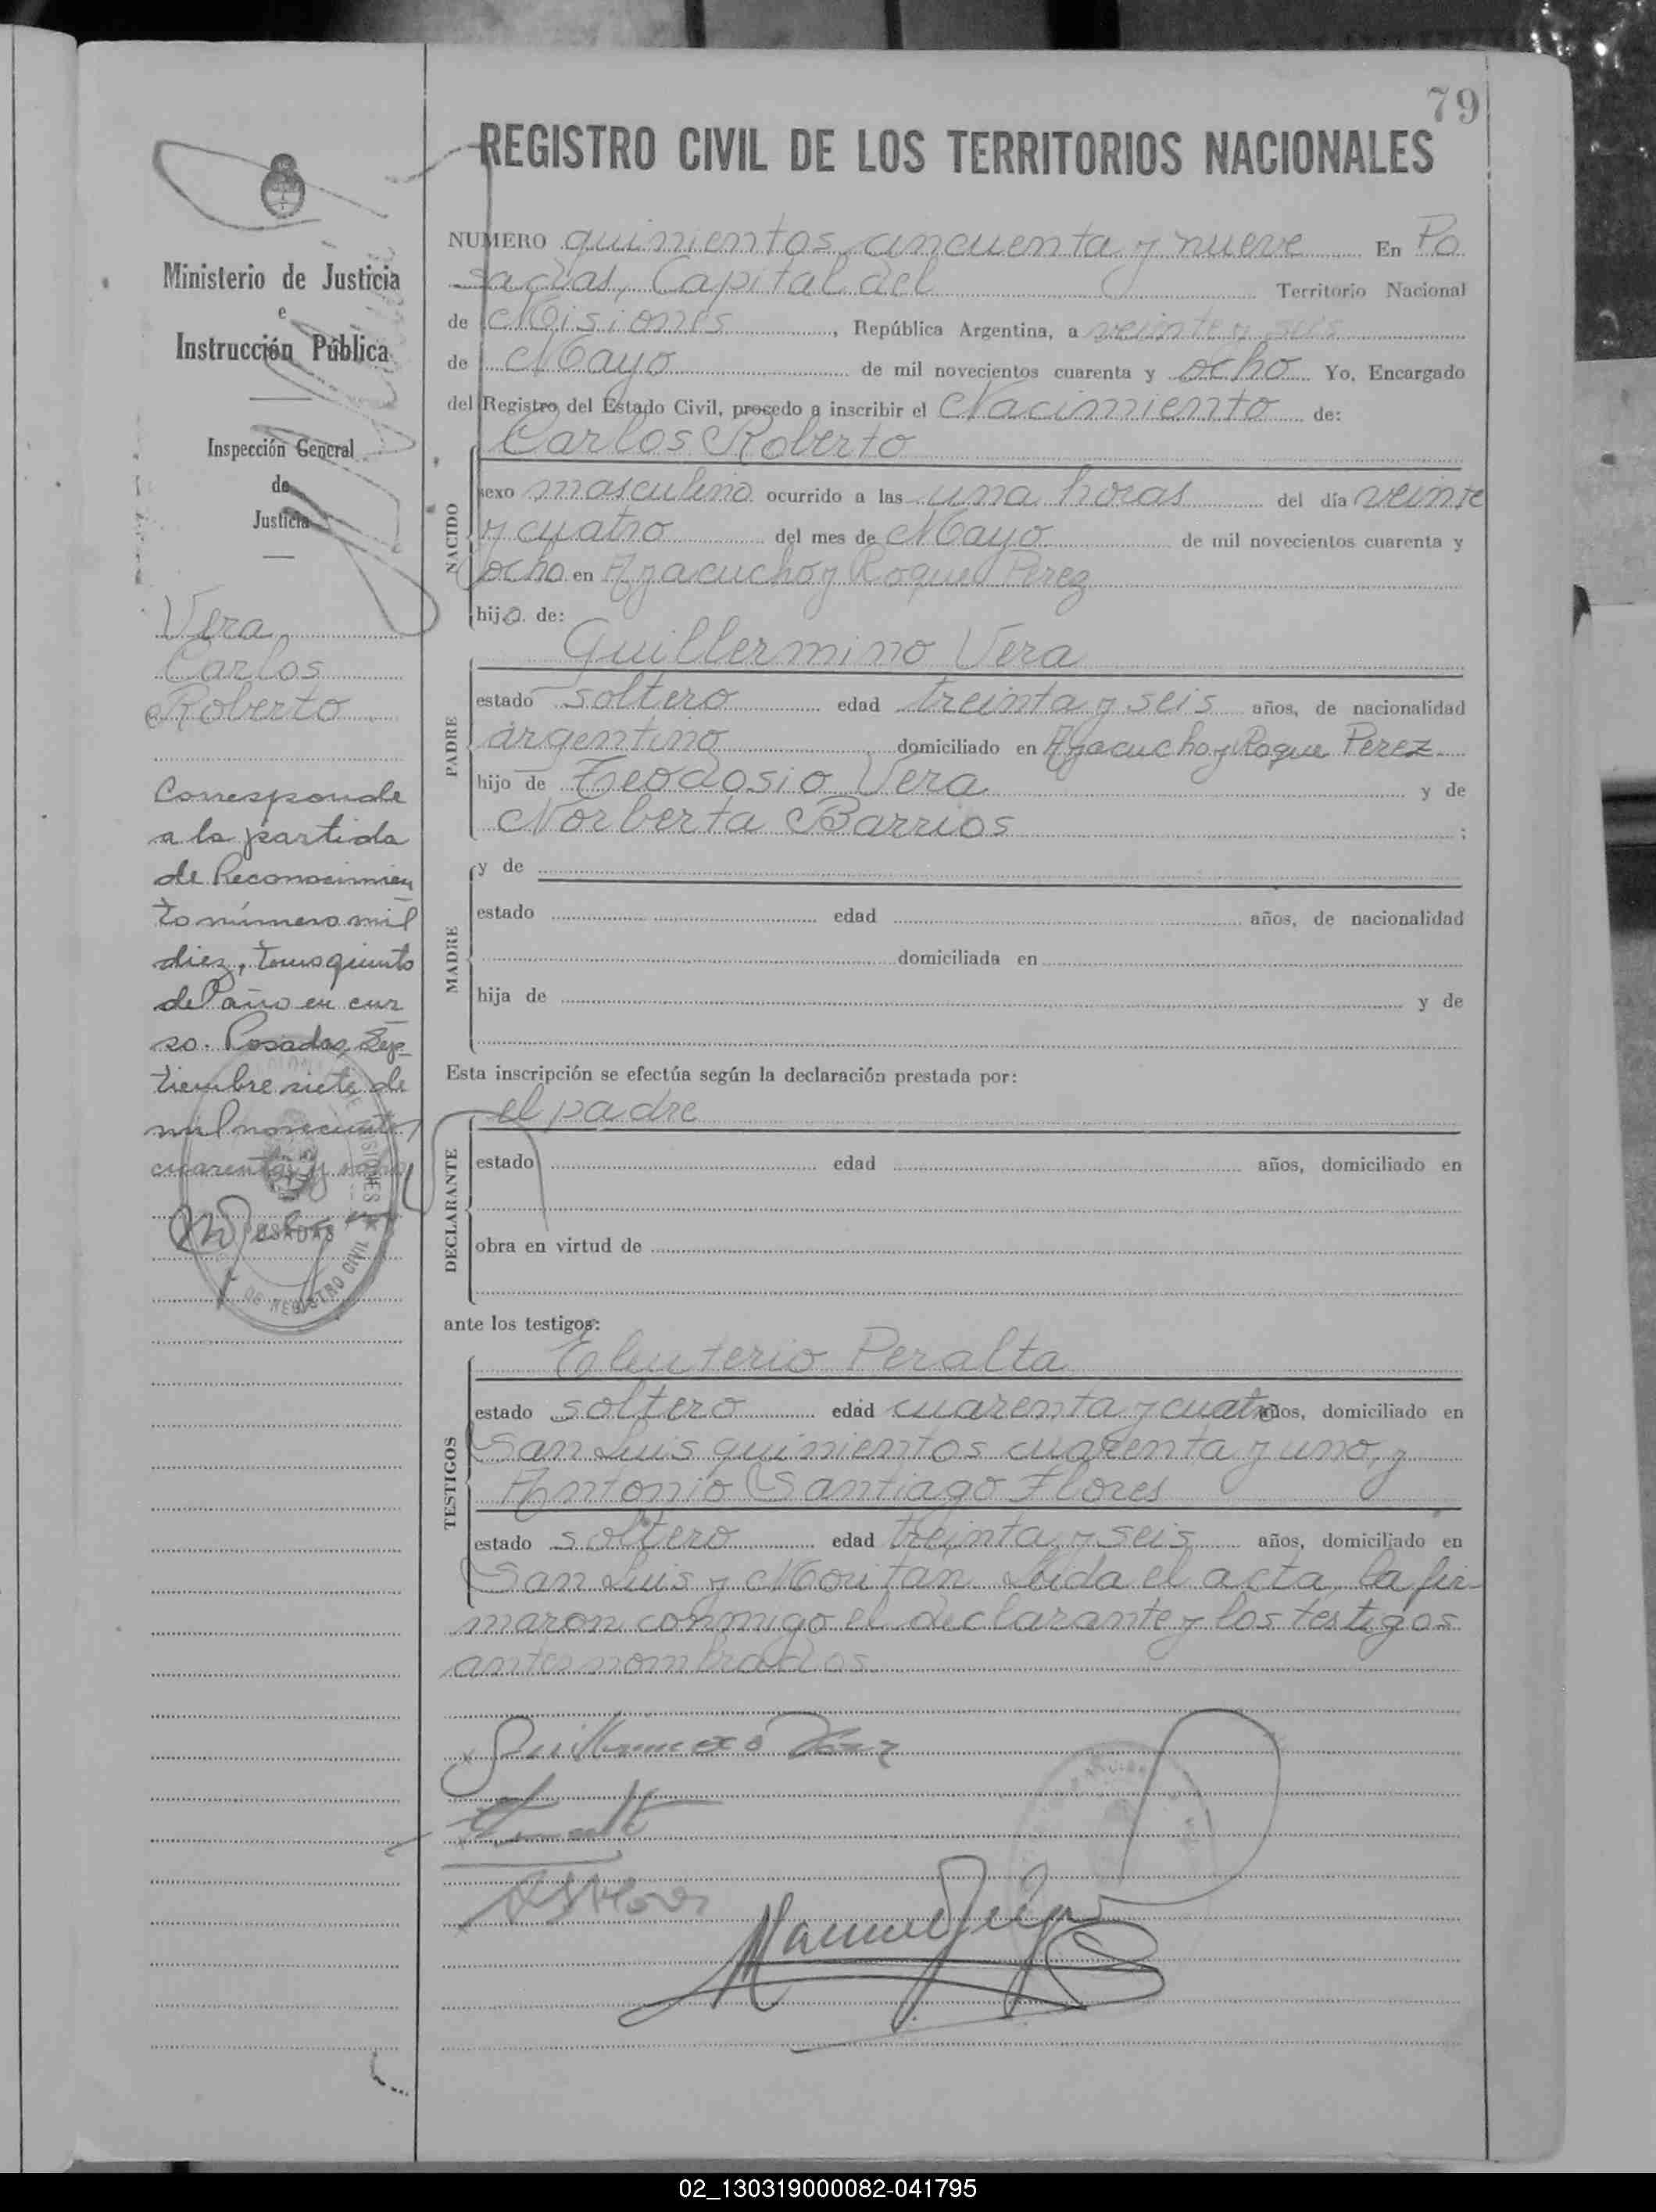 79
REGISTRO CIVIL DE LOS TERRITORIOS NACIONALES
Ministerio de Justicia
e
Instrucción Pública
Inspección General
de
Justicia
Vera,
Carlos
Roberto
Corresponde
a la partida
de Reconocimien
to número mil
diez, tomo quinto
del año en cur
so. Posadas, Sep
tiembre siete de
mil novecientos
cuarenta y
POSADAS
DE REGISTRO CIVIL
MISIONES
NUMERO quinientos cincuenta y nueve En Po
sadas, Capital del Territorio Nacional
de Misiones, República Argentina, a veinte y seis
de Mayo de mil novecientos cuarenta y ocho Yo, Encargado
del Registro del Estado Civil, procedo a inscribir el Nacimiento de:
NACIDO
Carlos Roberto
sexo masculino ocurrido a las una horas del día veinte
y cuatro del mes de Mayo de mil novecientos cuarenta y
ocho en Ayacucho y Roque Perez
hijo de:
PADRE
Guillermino Vera
estado soltero edad treinta y seis años, de nacionalidad
argentino domiciliado en Ayacucho y Roque Perez
hijo de Teodosio Vera y de
Norberta Barrios ;
MADRE
y de
estado edad años, de nacionalidad
domiciliada en
hija de y de
Esta inscripción se efectúa según la declaración prestada por:
DECLARANTE
el padre
estado edad años, domiciliado en
obra en virtud de
ante los testigos:
TESTIGOS
Eleuterio Peralta
estado soltero edad cuarenta y cuatro años, domiciliado en
San Luis quinientos cuarenta y uno, y
Antonio Santiago Flores
estado soltero edad treinta y seis años, domiciliado en
San Luis y Moritán Leida el acta, la fir
maron conmigo el declarante y los testigos
antes nombrados
02_130319000082-041795